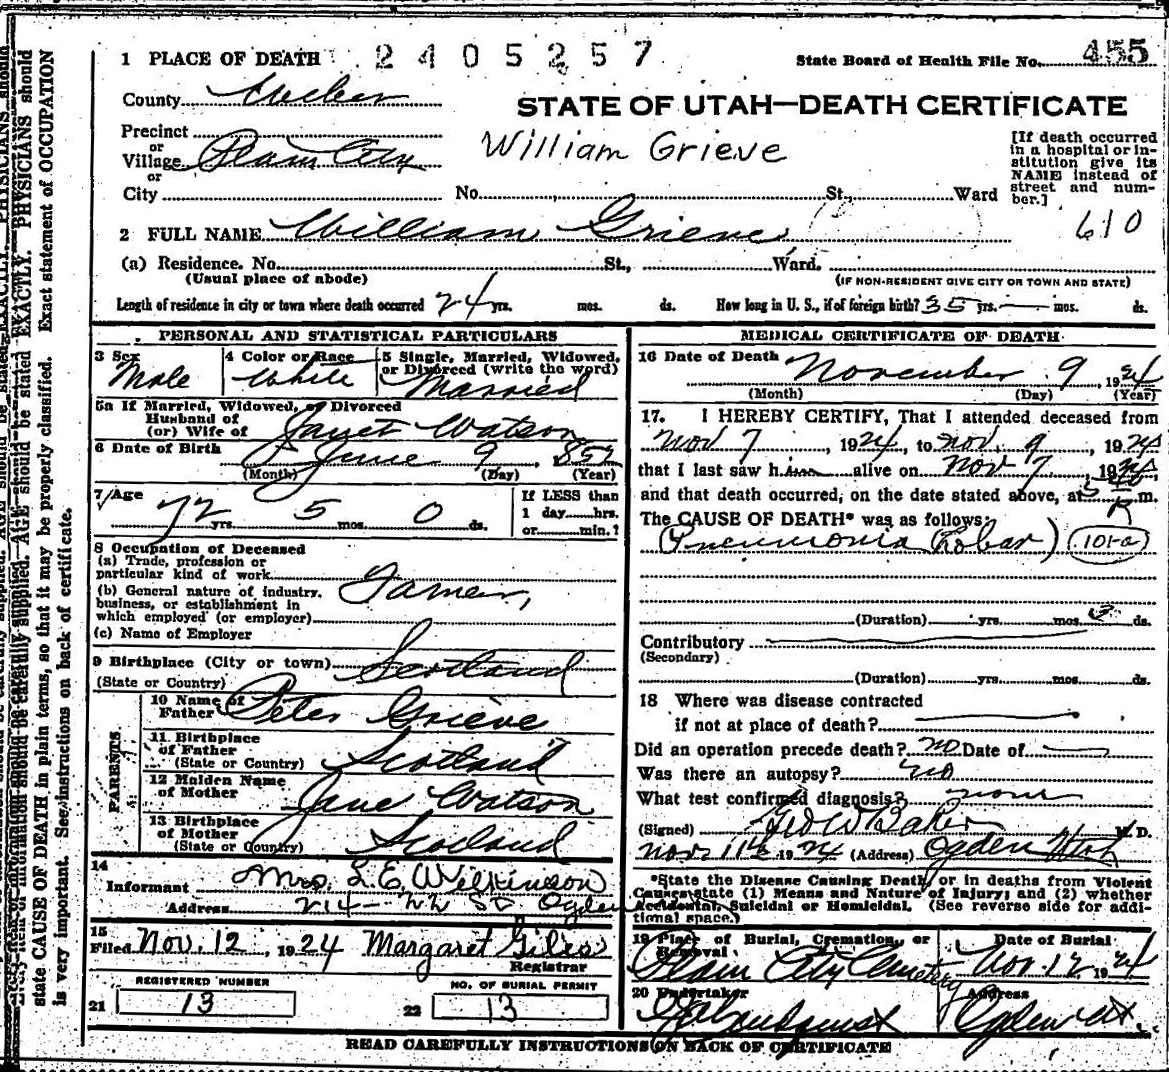 1 PLACE OF DEATH 2405257 State Board of Health File No. 455
County Weber
STATE OF UTAH—DEATH CERTIFICATE
Precinct
or
Village Plain City
or
City No. St., Ward
William Grieve
[If death occurred
in a hospital or in-
stitution give its
NAME instead of
street and num-
ber.]
2 FULL NAME William Grieve 610
(a) Residence. No. St., Ward.
(Usual place of abode) (IF NON-RESIDENT GIVE CITY OR TOWN AND STATE)
Length of residence in city or town where death occurred 24 yrs. mos. ds. How long in U. S., if of foreign birth? 35 yrs. — mos. ds.
PERSONAL AND STATISTICAL PARTICULARS
3 Sex
Male
4 Color or Race
White
5 Single, Married, Widowed,
or Divorced (write the word)
Married
5a If Married, Widowed, or Divorced
Husband of
(or) Wife of Janet Watson
6 Date of Birth June 9, 852
(Month) (Day) (Year)
7 Age
72 yrs. 5 mos. 0 ds.
If LESS than
1 day hrs.
or min.?
8 Occupation of Deceased
(a) Trade, profession or
particular kind of work
(b) General nature of industry,
business, or establishment in
which employed (or employer)
Farmer,
(c) Name of Employer
9 Birthplace (City or town) Scotland
(State or Country)
PARENTS
10 Name of
Father Peter Grieve
11 Birthplace
of Father
(State or Country) Scotland
12 Maiden Name
of Mother Jane Watson
13 Birthplace
of Mother
(State or Country) Scotland
14
Informant Mrs. L. E. Wilkinson
Address 214 - 22 St Ogden
15
Filed Nov. 12, 1924 Margaret Giles
Registrar
REGISTERED NUMBER
21 13
NO. OF BURIAL PERMIT
22 13
MEDICAL CERTIFICATE OF DEATH
16 Date of Death November 9, 1924
(Month) (Day) (Year)
17. I HEREBY CERTIFY, That I attended deceased from
Nov 7, 1924, to Nov. 9, 1924
that I last saw him alive on Nov 7, 1924
and that death occurred, on the date stated above, at m.
The CAUSE OF DEATH* was as follows:
Pneumonia (Lobar) 101-a
(Duration) yrs. mos. 3 ds.
Contributory
(Secondary)
(Duration) yrs. mos. ds.
18 Where was disease contracted
if not at place of death?
Did an operation precede death? no Date of —
Was there an autopsy? no
What test confirmed diagnosis? none
(Signed) Geo W Baker M. D.
Nov 11th 1924 (Address) Ogden Utah
*State the Disease Causing Death, or in deaths from Violent
Causes state (1) Means and Nature of Injury; and (2) whether
Accidental, Suicidal or Homicidal. (See reverse side for addi-
tional space.)
19 Place of Burial, Cremation, or
Removal
Plain City Cemetery
Date of Burial
Nov. 12 1924
20 Undertaker
Address
Ogden Ut.
READ CAREFULLY INSTRUCTIONS ON BACK OF CERTIFICATE
EXACTLY. PHYSICIANS should
state CAUSE OF DEATH in plain terms, so that it may be properly classified. Exact statement of OCCUPATION
is very important. See instructions on back of certificate.